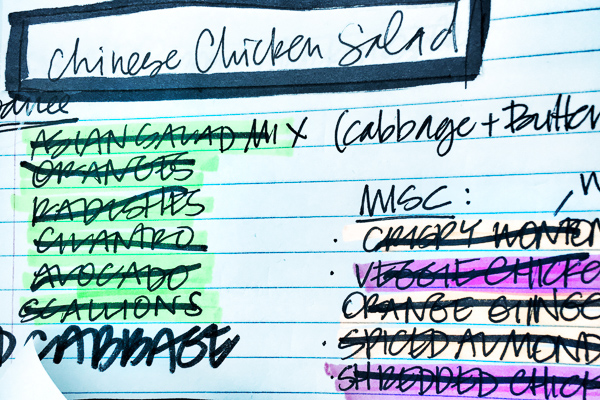 Chinese Chicken Salad
ASIAN SALAD MIX (cabbage + Butter
ORANGES
RADISHES
CILANTRO
AVOCADO
SCALLIONS
CABBAGE
MISC:
CRISPY WONTON
VEGGIE CHICK
ORANGE GINGE
SPICED ALMOND
SHREDDED CHICK